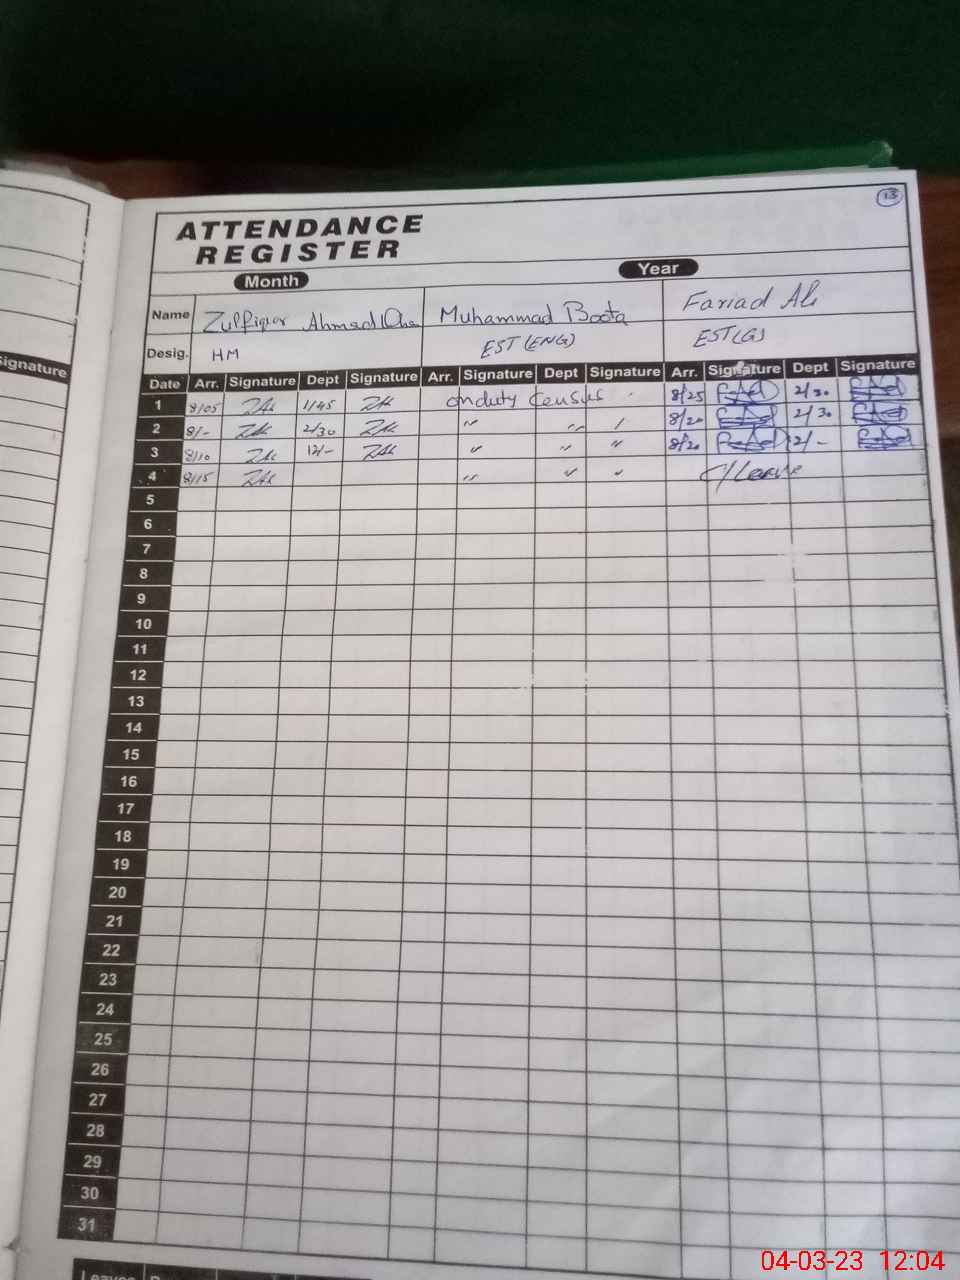 13
ATTENDANCE
REGISTER
Month Year
Name Zulfiqar Ahmad Muhammad Boota Fariad Ali
Desig. HM EST (ENG) EST (G)
Signature
Date Arr. Signature Dept Signature Arr. Signature Dept Signature Arr. Signature Dept Signature
1 8/05 ZAk 1/45 ZAk on duty Census 8/25 2/30
2 8/- ZAk 2/30 ZAk " " " 8/20 2/30
3 8/10 ZAk 12/- ZAk " " " 8/20 12/-
4 8/15 ZAk " " " C/Leave
5
6
7
8
9
10
11
12
13
14
15
16
17
18
19
20
21
22
23
24
25
26
27
28
29
30
31
Leaves
04-03-23 12:04